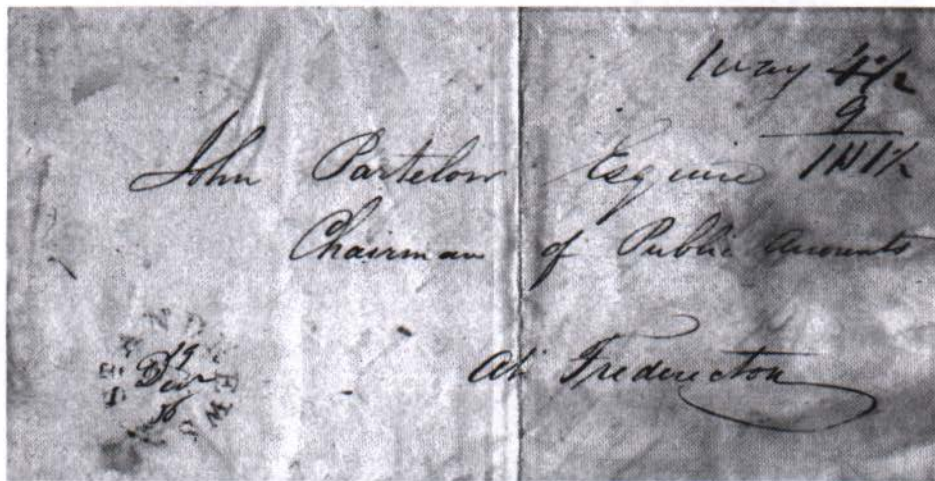 1 way 4½
9
1N1½
John Partelow Esquire
Chairman of Public Accounts
At Fredericton
19
Decr